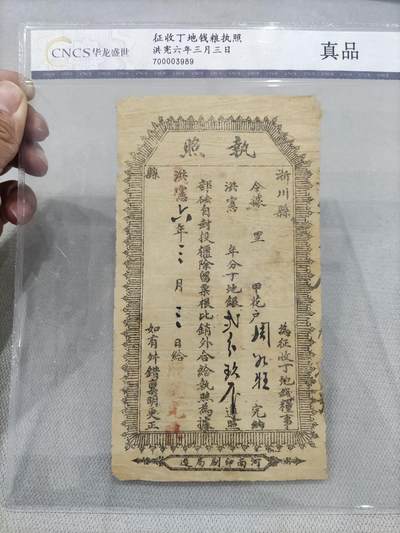 CNCS 华龙盛世
征收丁地钱粮执照
洪宪六年三月三日
700003989
真品
執照
淅川縣 為征收丁地錢糧事
今據 里 甲花戶周 完納
洪憲 年分丁地銀貳分玖 遵照
部砝自封投櫃除留票根比銷外合給執照為據
洪憲六年三月三日給
縣 如有舛錯稟明更正
河南印刷局造